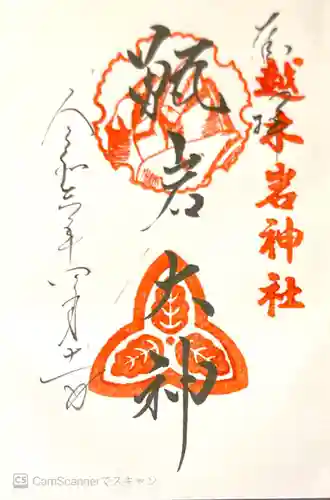 奉拝
越木岩神社
甑岩大神
令和六年四月十一日
CS CamScannerでスキャン